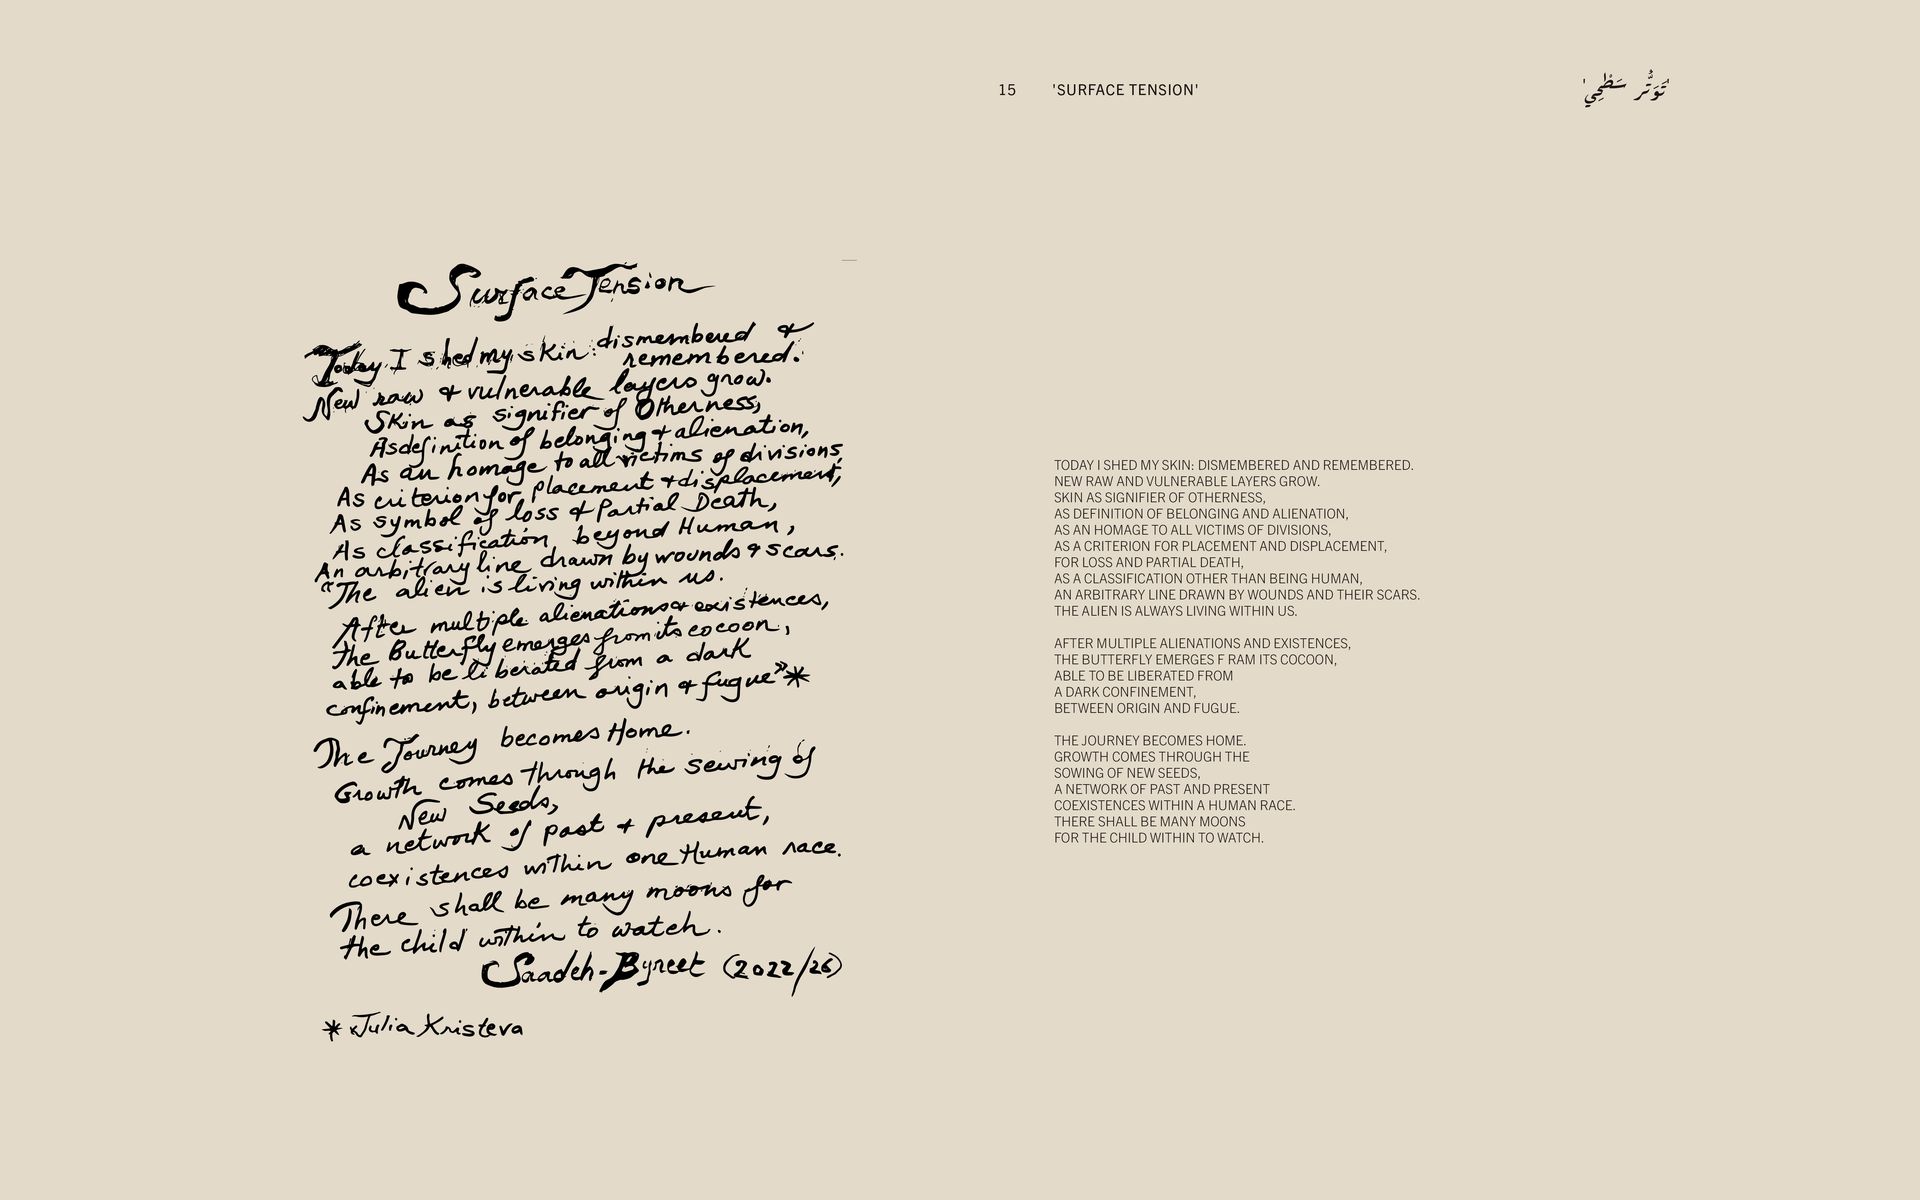 15 'SURFACE TENSION' 'تَوَتُّر سَطْحِي'
Surface Tension
Today I shed my skin: dismembered &
remembered.
New raw & vulnerable layers grow.
Skin as signifier of Otherness,
As definition of belonging & alienation,
As an homage to all victims of divisions,
As criterion for placement & displacement,
As symbol of loss & Partial Death,
As classification beyond Human,
An arbitrary line drawn by wounds & scars.
"The alien is living within us.
After multiple alienations & existences,
the Butterfly emerges from its cocoon,
able to be liberated from a dark
confinement, between origin & fugue"*
The Journey becomes Home.
Growth comes through the sewing of
New Seeds,
a network of past & present,
coexistences within one Human race.
There shall be many moons for
the child within to watch.
Saadeh-Byreet (2022/26)
* Julia Kristeva
TODAY I SHED MY SKIN: DISMEMBERED AND REMEMBERED.
NEW RAW AND VULNERABLE LAYERS GROW.
SKIN AS SIGNIFIER OF OTHERNESS,
AS DEFINITION OF BELONGING AND ALIENATION,
AS AN HOMAGE TO ALL VICTIMS OF DIVISIONS,
AS A CRITERION FOR PLACEMENT AND DISPLACEMENT,
FOR LOSS AND PARTIAL DEATH,
AS A CLASSIFICATION OTHER THAN BEING HUMAN,
AN ARBITRARY LINE DRAWN BY WOUNDS AND THEIR SCARS.
THE ALIEN IS ALWAYS LIVING WITHIN US.
AFTER MULTIPLE ALIENATIONS AND EXISTENCES,
THE BUTTERFLY EMERGES F RAM ITS COCOON,
ABLE TO BE LIBERATED FROM
A DARK CONFINEMENT,
BETWEEN ORIGIN AND FUGUE.
THE JOURNEY BECOMES HOME.
GROWTH COMES THROUGH THE
SOWING OF NEW SEEDS,
A NETWORK OF PAST AND PRESENT
COEXISTENCES WITHIN A HUMAN RACE.
THERE SHALL BE MANY MOONS
FOR THE CHILD WITHIN TO WATCH.